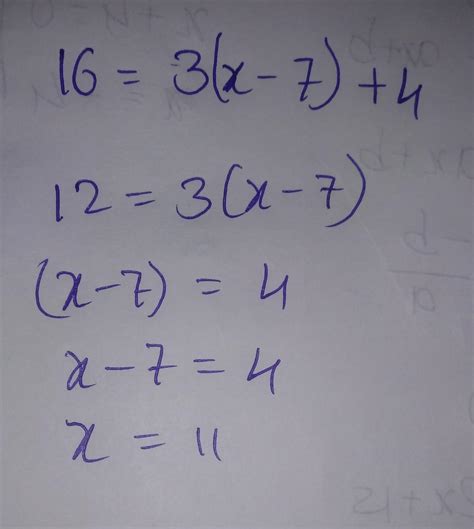 16 = 3(x - 7) + 4
12 = 3(x - 7)
(x - 7) = 4
x - 7 = 4
x = 11